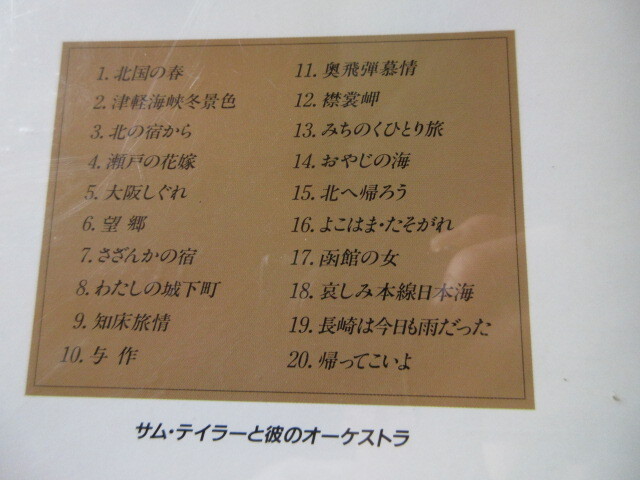 1. 北国の春
2. 津軽海峡冬景色
3. 北の宿から
4. 瀬戸の花嫁
5. 大阪しぐれ
6. 望郷
7. さざんかの宿
8. わたしの城下町
9. 知床旅情
10. 与作
11. 奥飛弾慕情
12. 襟裳岬
13. みちのくひとり旅
14. おやじの海
15. 北へ帰ろう
16. よこはま・たそがれ
17. 函館の女
18. 哀しみ本線日本海
19. 長崎は今日も雨だった
20. 帰ってこいよ
サム・テイラーと彼のオーケストラ